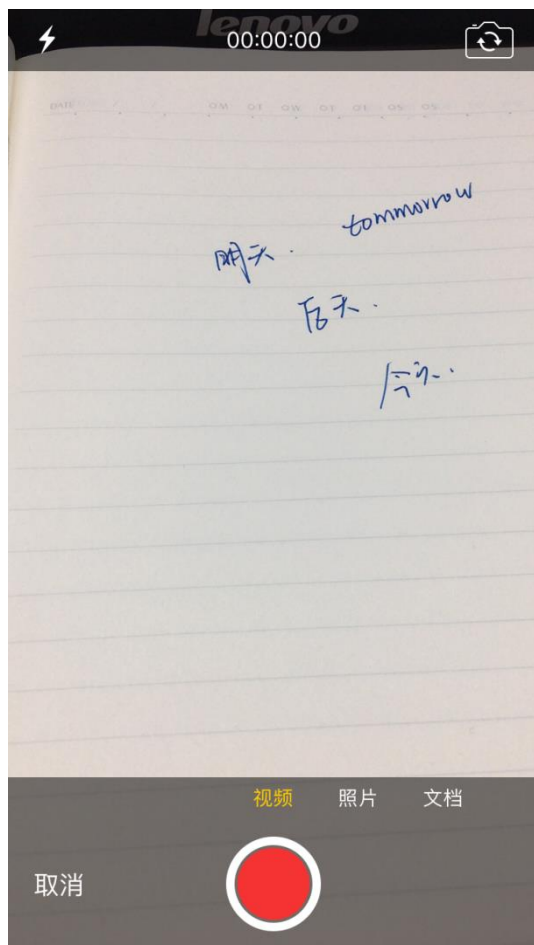 lenovo
00:00:00
DATE
明天. tommorrow
后天.
今天.
视频 照片 文档
取消